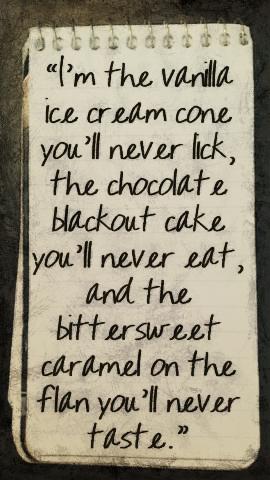 “I'm the vanilla
ice cream cone
you'll never lick,
the chocolate
blackout cake
you'll never eat,
and the
bittersweet
caramel on the
flan you'll never
taste.”